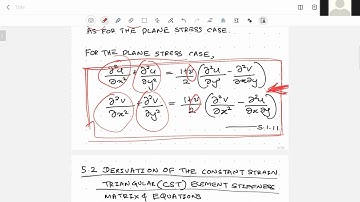 Title
AS FOR THE PLANE STRESS CASE.
FOR THE PLANE STRESS CASE,
∂²u/∂x² + ∂²u/∂y² = 1+ν/2 (∂²u/∂y² - ∂²v/∂x∂y)
∂²v/∂x² + ∂²v/∂y² = 1+ν/2 (∂²v/∂x² - ∂²u/∂x∂y)
5.1.11
5.2 DERIVATION OF THE CONSTANT STRAIN
TRIANGULAR (CST) ELEMENT STIFFNESS
MATRIX & EQUATIONS